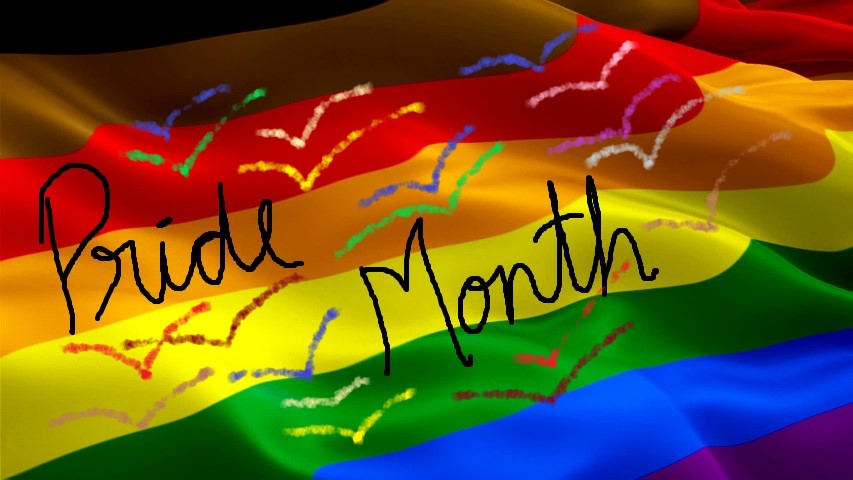 Pride
Month